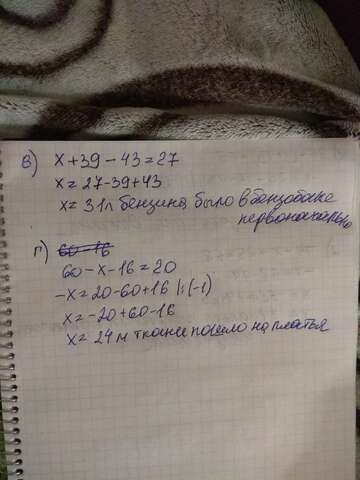 в) x+39-43=27
x=27-39+43
x=31л бензина было в бензобаке
первоначально
г) 60-16
60-x-16=20
-x=20-60+16 |:(-1)
x=-20+60-16
x=24м ткани пошло на платья